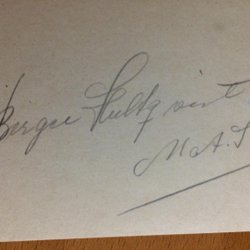 Birger Hultqvist
M.A.